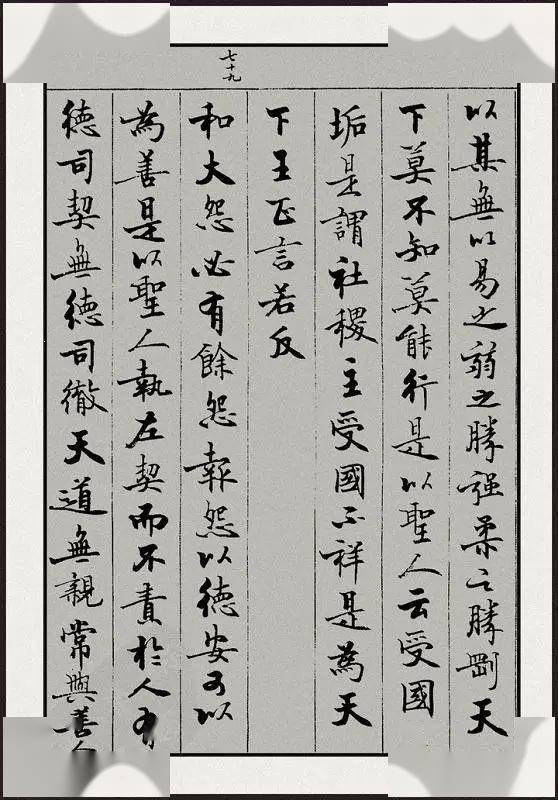 以其無以易之弱之勝强柔之勝剛天
下莫不知莫能行是以聖人云受國
垢是謂社稷主受國不祥是為天
下王正言若反
七十九
和大怨必有餘怨報怨以徳安可以
為善是以聖人執左契而不責於人有
徳司契無徳司徹天道無親常與善人